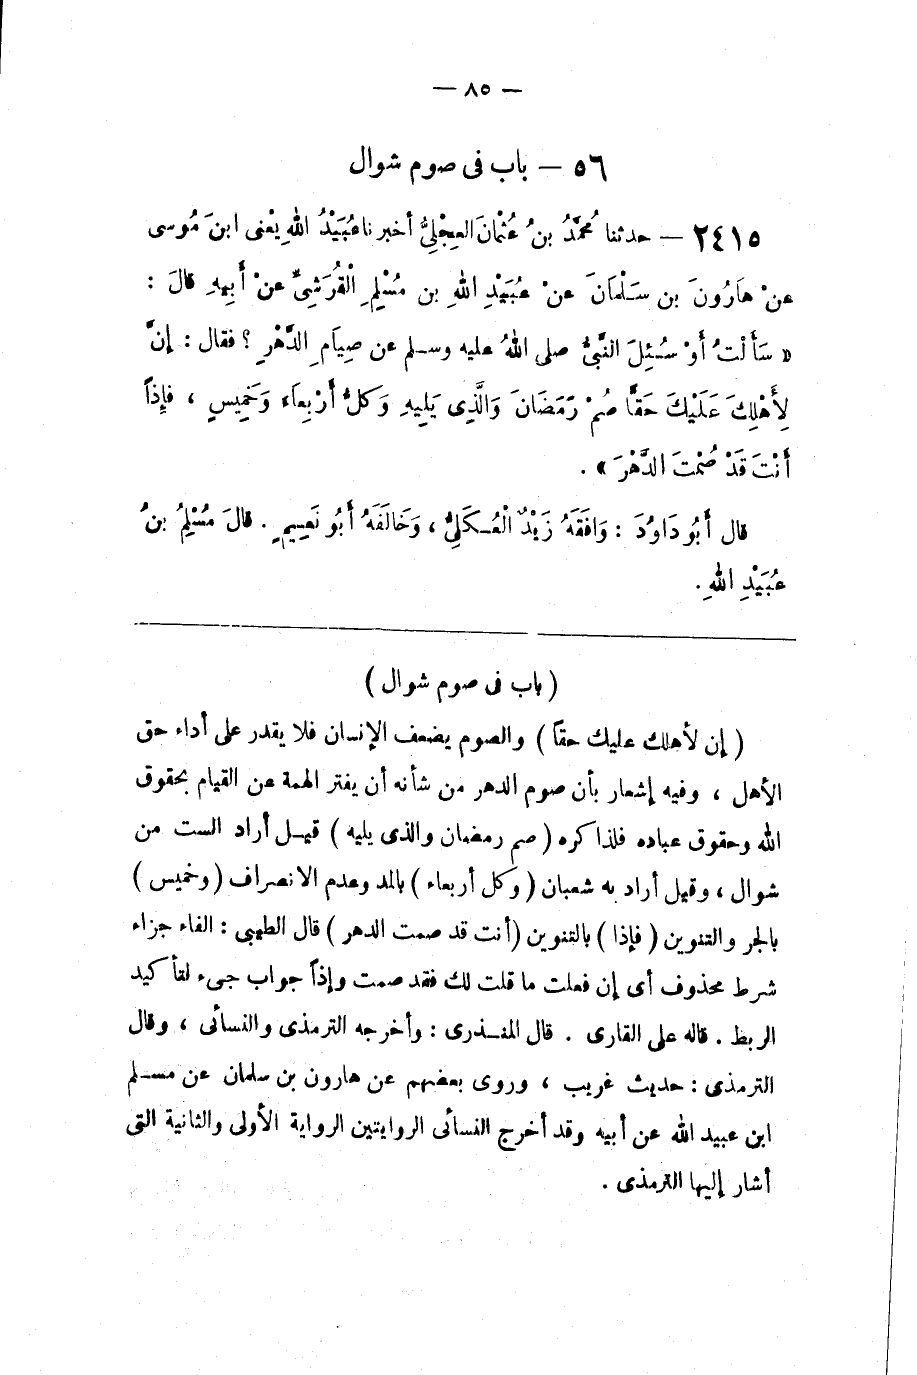 — ٨٥ —
٥٦ — باب فى صوم شوال
٢٤١٥ — حدثنا مُحمَّدُ بنُ عُثْمانَ العِجْلِيُّ أخبرنا عُبَيْدُ اللهِ يَعْنى ابنَ مُوسى
عنْ هَارُونَ بن سَلْمَانَ عنْ عُبَيْدِ اللهِ بن مُسْلِمٍ الْقُرَشِىِّ عنْ أبِيهِ قالَ :
« سَأَلْتُ أوْ سُئِلَ النَّبىُّ صلى اللهُ عليه وسلم عن صِيَامِ الدَّهْرِ ؟ فقال : إنَّ
لِأَهْلِكَ عَلَيْكَ حَقًّا صُمْ رَمَضَانَ وَالَّذِى يَلِيهِ وَكلَّ أرْبِعاَء وَخَمِيسٍ ، فإِذاً
أنْتَ قَدْ صُمْتَ الدَّهْرَ » .
قال أَبُو دَاوُدَ : وَافَقَهُ زَيْدٌ الْعُكلىُّ ، وَخَالَفَهُ أَبُو نَعِيمٍ . قالَ مُسْلِمُ بنُ
عُبَيْدِ اللهِ .
( باب فى صوم شوال )
( إن لأهلك عليك حقاً ) والصوم يضعف الإنسان فلا يقدر على أداء حق
الأهل ، وفيه إشعار بأن صوم الدهر من شأنه أن يفتر الهمة عن القيام بحقوق
الله وحقوق عباده فلذا كره ( صم رمضان والذى يليه ) قيل أراد الست من
شوال ، وقيل أراد به شعبان ( وكل أربعاء ) بالمد وعدم الانصراف ( وخميس )
بالجر والتنوين ( فإذا ) بالتنوين ( أنت قد صمت الدهر ) قال الطيبى : الفاء جزاء
شرط محذوف أى إن فعلت ما قلت لك فقد صمت وإذاً جواب جىء لتأكيد
الربط . قاله على القارى . قال المنذرى : وأخرجه الترمذى والنسائى ، وقال
الترمذى : حديث غريب ، وروى بعضهم عن هارون بن سلمان عن مسلم
ابن عبيد الله عن أبيه وقد أخرج النسائى الروايتين الرواية الأولى والثانية التى
أشار إليها الترمذى .